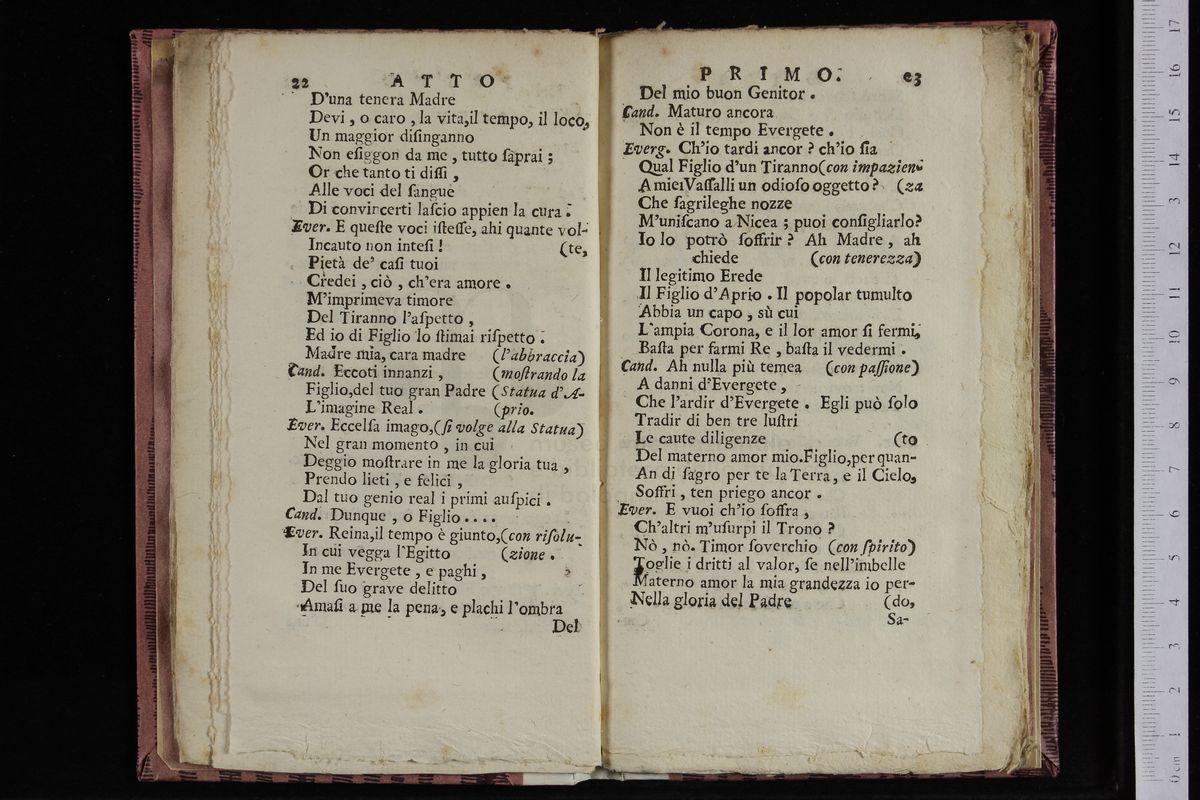 22 ATTO
D'una tenera Madre
Devi , o caro , la vita,il tempo, il loco,
Un maggior diſinganno
Non eſiggon da me , tutto ſaprai ;
Or che tanto ti diſſi ,
Alle voci del ſangue
Di convincerti laſcio appien la cura .
Ever. E queſte voci iſteſſe, ahi quante vol-
Incauto non inteſi ! (te,
Pietà de' caſi tuoi
Credei , ciò , ch'era amore .
M'imprimeva timore
Del Tiranno l'aſpetto ,
Ed io di Figlio lo ſtimai riſpetto .
Madre mia, cara madre (l'abbraccia)
Cand. Eccoti innanzi , (moſtrando la
Figlio,del tuo gran Padre (Statua d'A-
L'imagine Real . (prio.
Ever. Eccelſa imago,(ſi volge alla Statua)
Nel gran momento , in cui
Deggio moſtrare in me la gloria tua ,
Prendo lieti , e felici ,
Dal tuo genio real i primi auſpici .
Cand. Dunque , o Figlio . . . .
Ever. Reina,il tempo è giunto,(con riſolu-
In cui vegga l'Egitto (zione .
In me Evergete , e paghi ,
Del ſuo grave delitto
Amaſi a me la pena , e plachi l'ombra
Del
PRIMO. 23
Del mio buon Genitor .
Cand. Maturo ancora
Non è il tempo Evergete .
Everg. Ch'io tardi ancor ? ch'io ſia
Qual Figlio d'un Tiranno(con impazien-
A miei Vaſſalli un odioſo oggetto ? (za
Che ſagrileghe nozze
M'uniſcano a Nicea ; puoi conſigliarlo?
Io lo potrò ſoffrir ? Ah Madre , ah
chiede (con tenerezza)
Il legitimo Erede
Il Figlio d'Aprio . Il popolar tumulto
Abbia un capo , sù cui
L'ampia Corona, e il lor amor ſi fermi,
Baſta per farmi Re , baſta il vedermi .
Cand. Ah nulla più temea (con paſſione)
A danni d'Evergete ,
Che l'ardir d'Evergete . Egli può ſolo
Tradir di ben tre luſtri
Le caute diligenze (to
Del materno amor mio.Figlio,per quan-
An di ſagro per te la Terra, e il Cielo,
Soffri , ten priego ancor .
Ever. E vuoi ch'io ſoffra ,
Ch'altri m'uſurpi il Trono ?
Nò , nò. Timor ſoverchio (con ſpirito)
Toglie i dritti al valor, ſe nell'imbelle
Materno amor la mia grandezza io per-
Nella gloria del Padre (do,
Sa-
0 cm 1 2 3 4 5 6 7 8 9 10 11 12 13 14 15 16 17